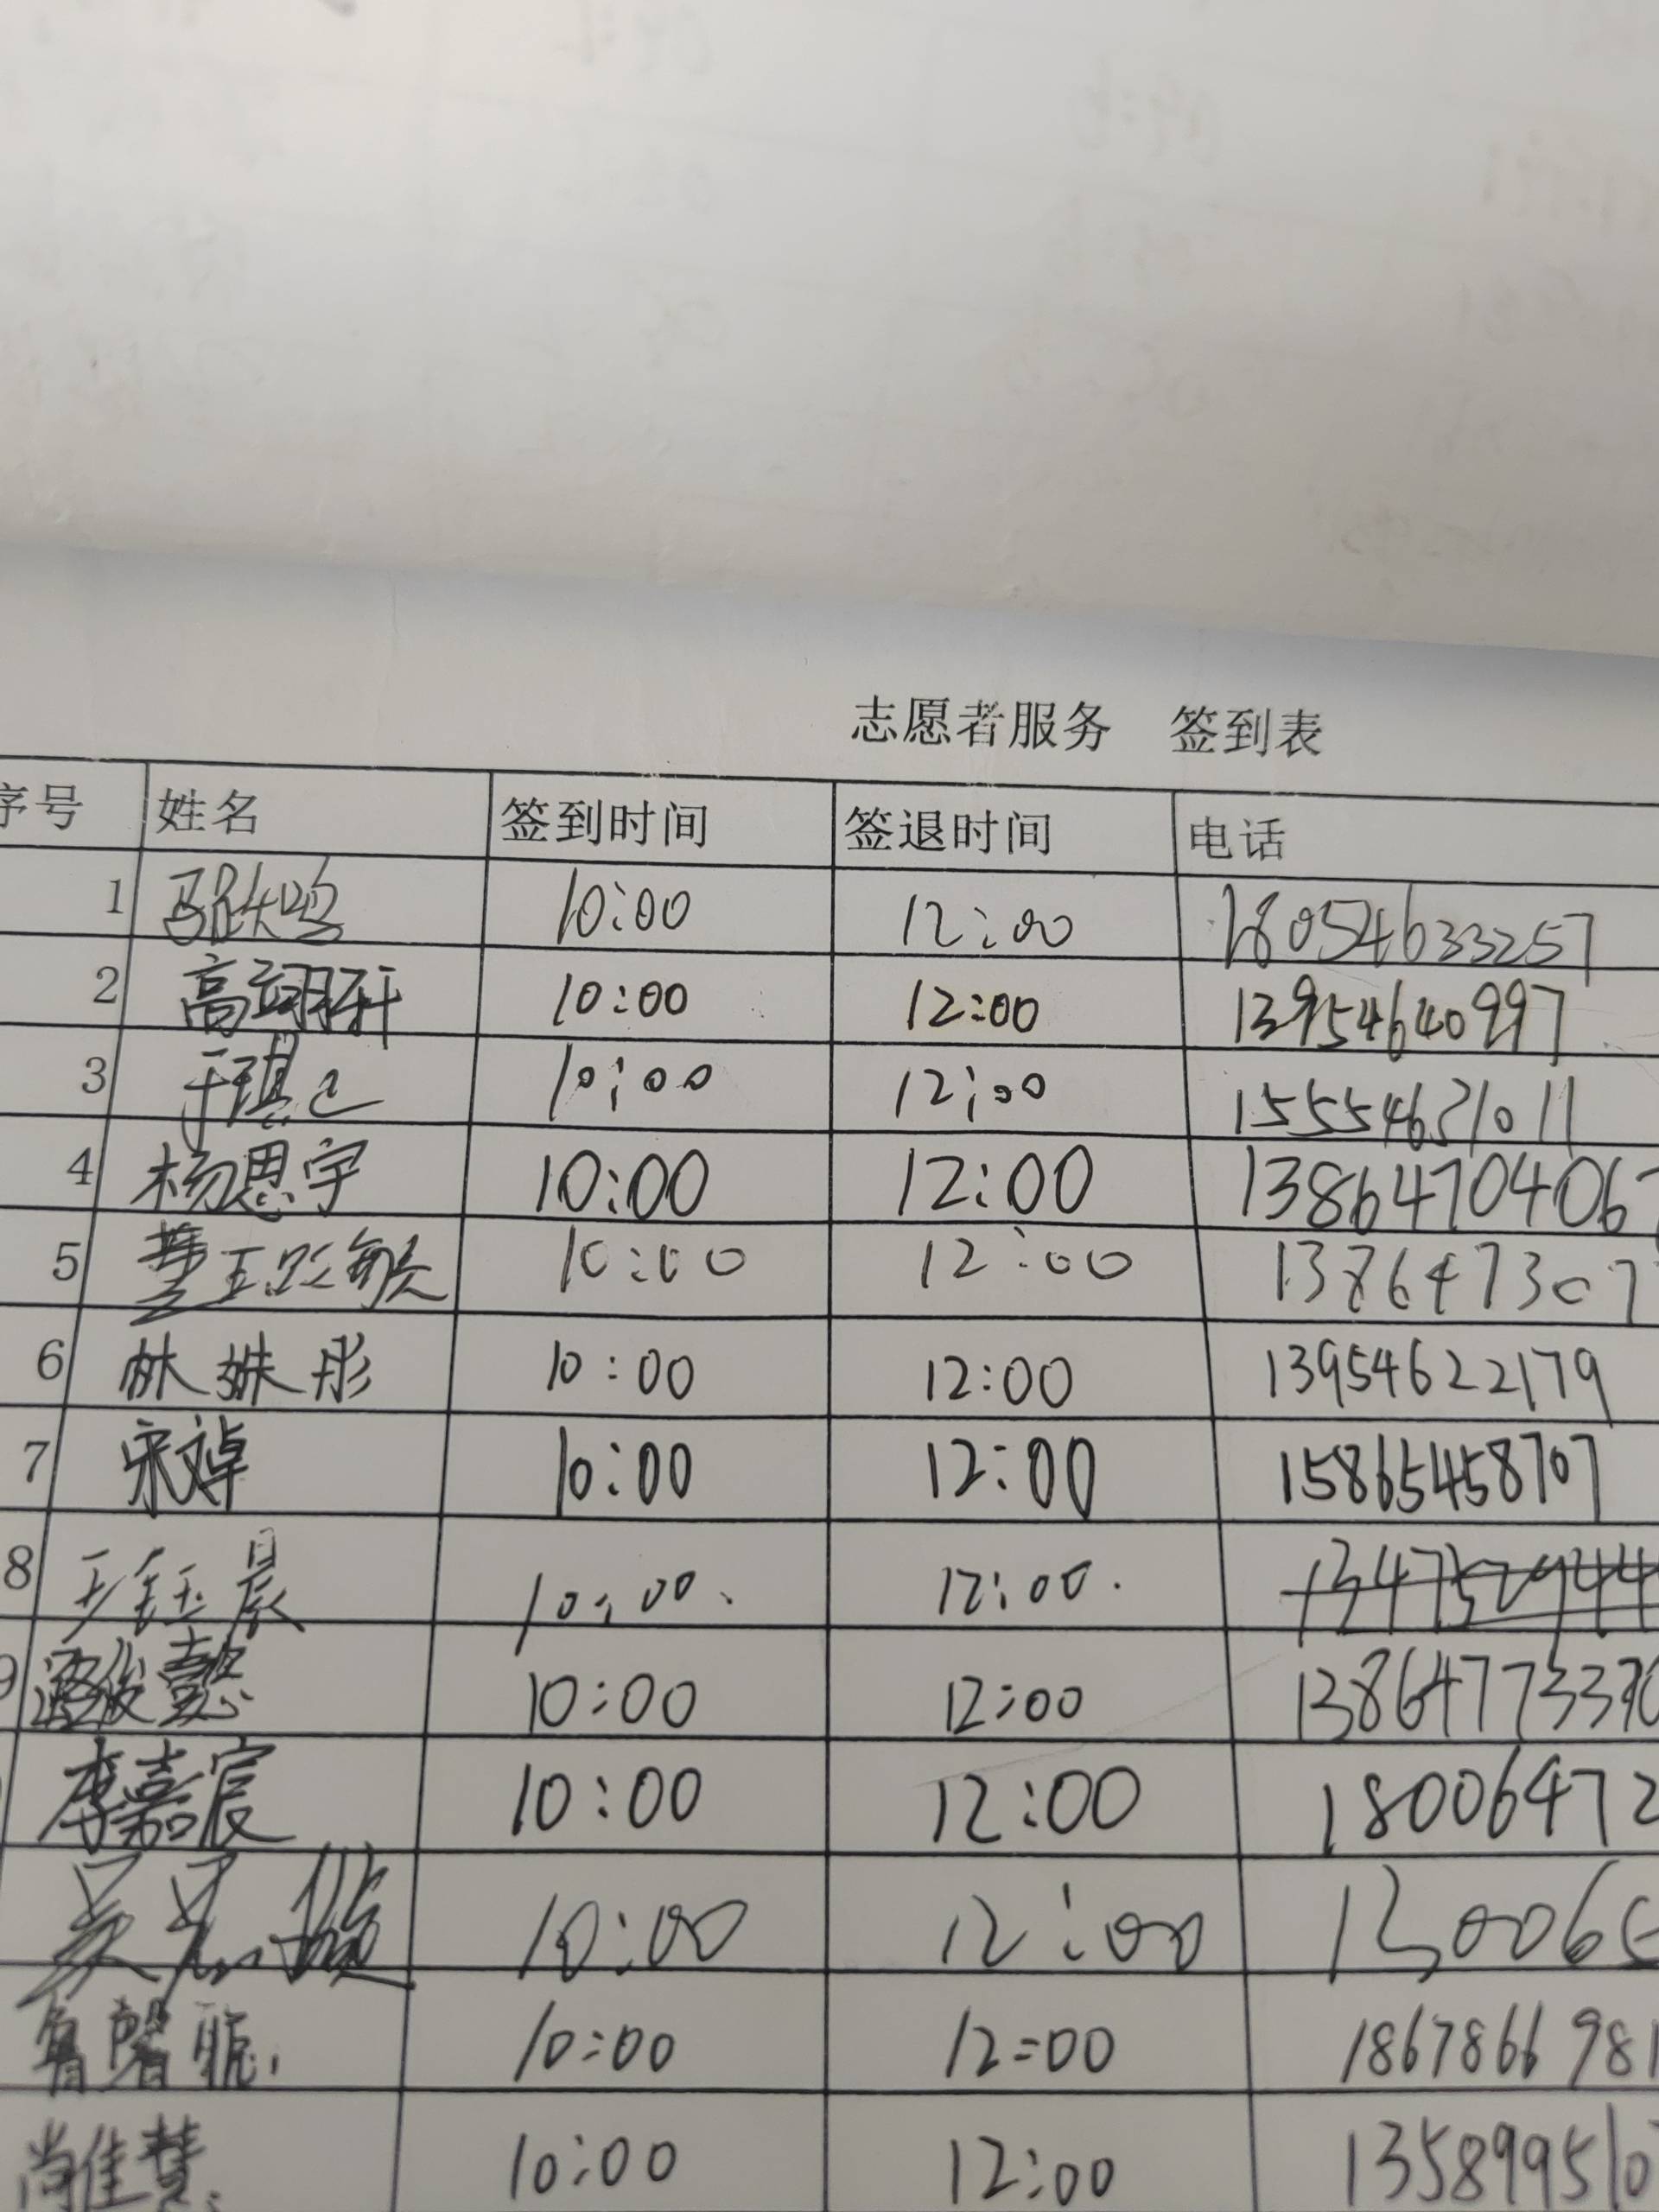 志愿者服务 签到表
序号 姓名 签到时间 签退时间 电话
1 10:00 12:00 18054633257
2 高翊轩 10:00 12:00 13954640997
3 于琪 10:00 12:00 15554631011
4 杨思宇 10:00 12:00 1386470406
5 10:00 12:00 138647307
6 林姝彤 10:00 12:00 13954622179
7 宋文婷 10:00 12:00 15865458707
8 王钰晨 10:00 12:00
9 10:00 12:00 138647733
李嘉宸 10:00 12:00 18006472
吴 10:00 12:00 130065
鲁馨 10:00 12:00 1867866981
尚佳慧 10:00 12:00 135899510